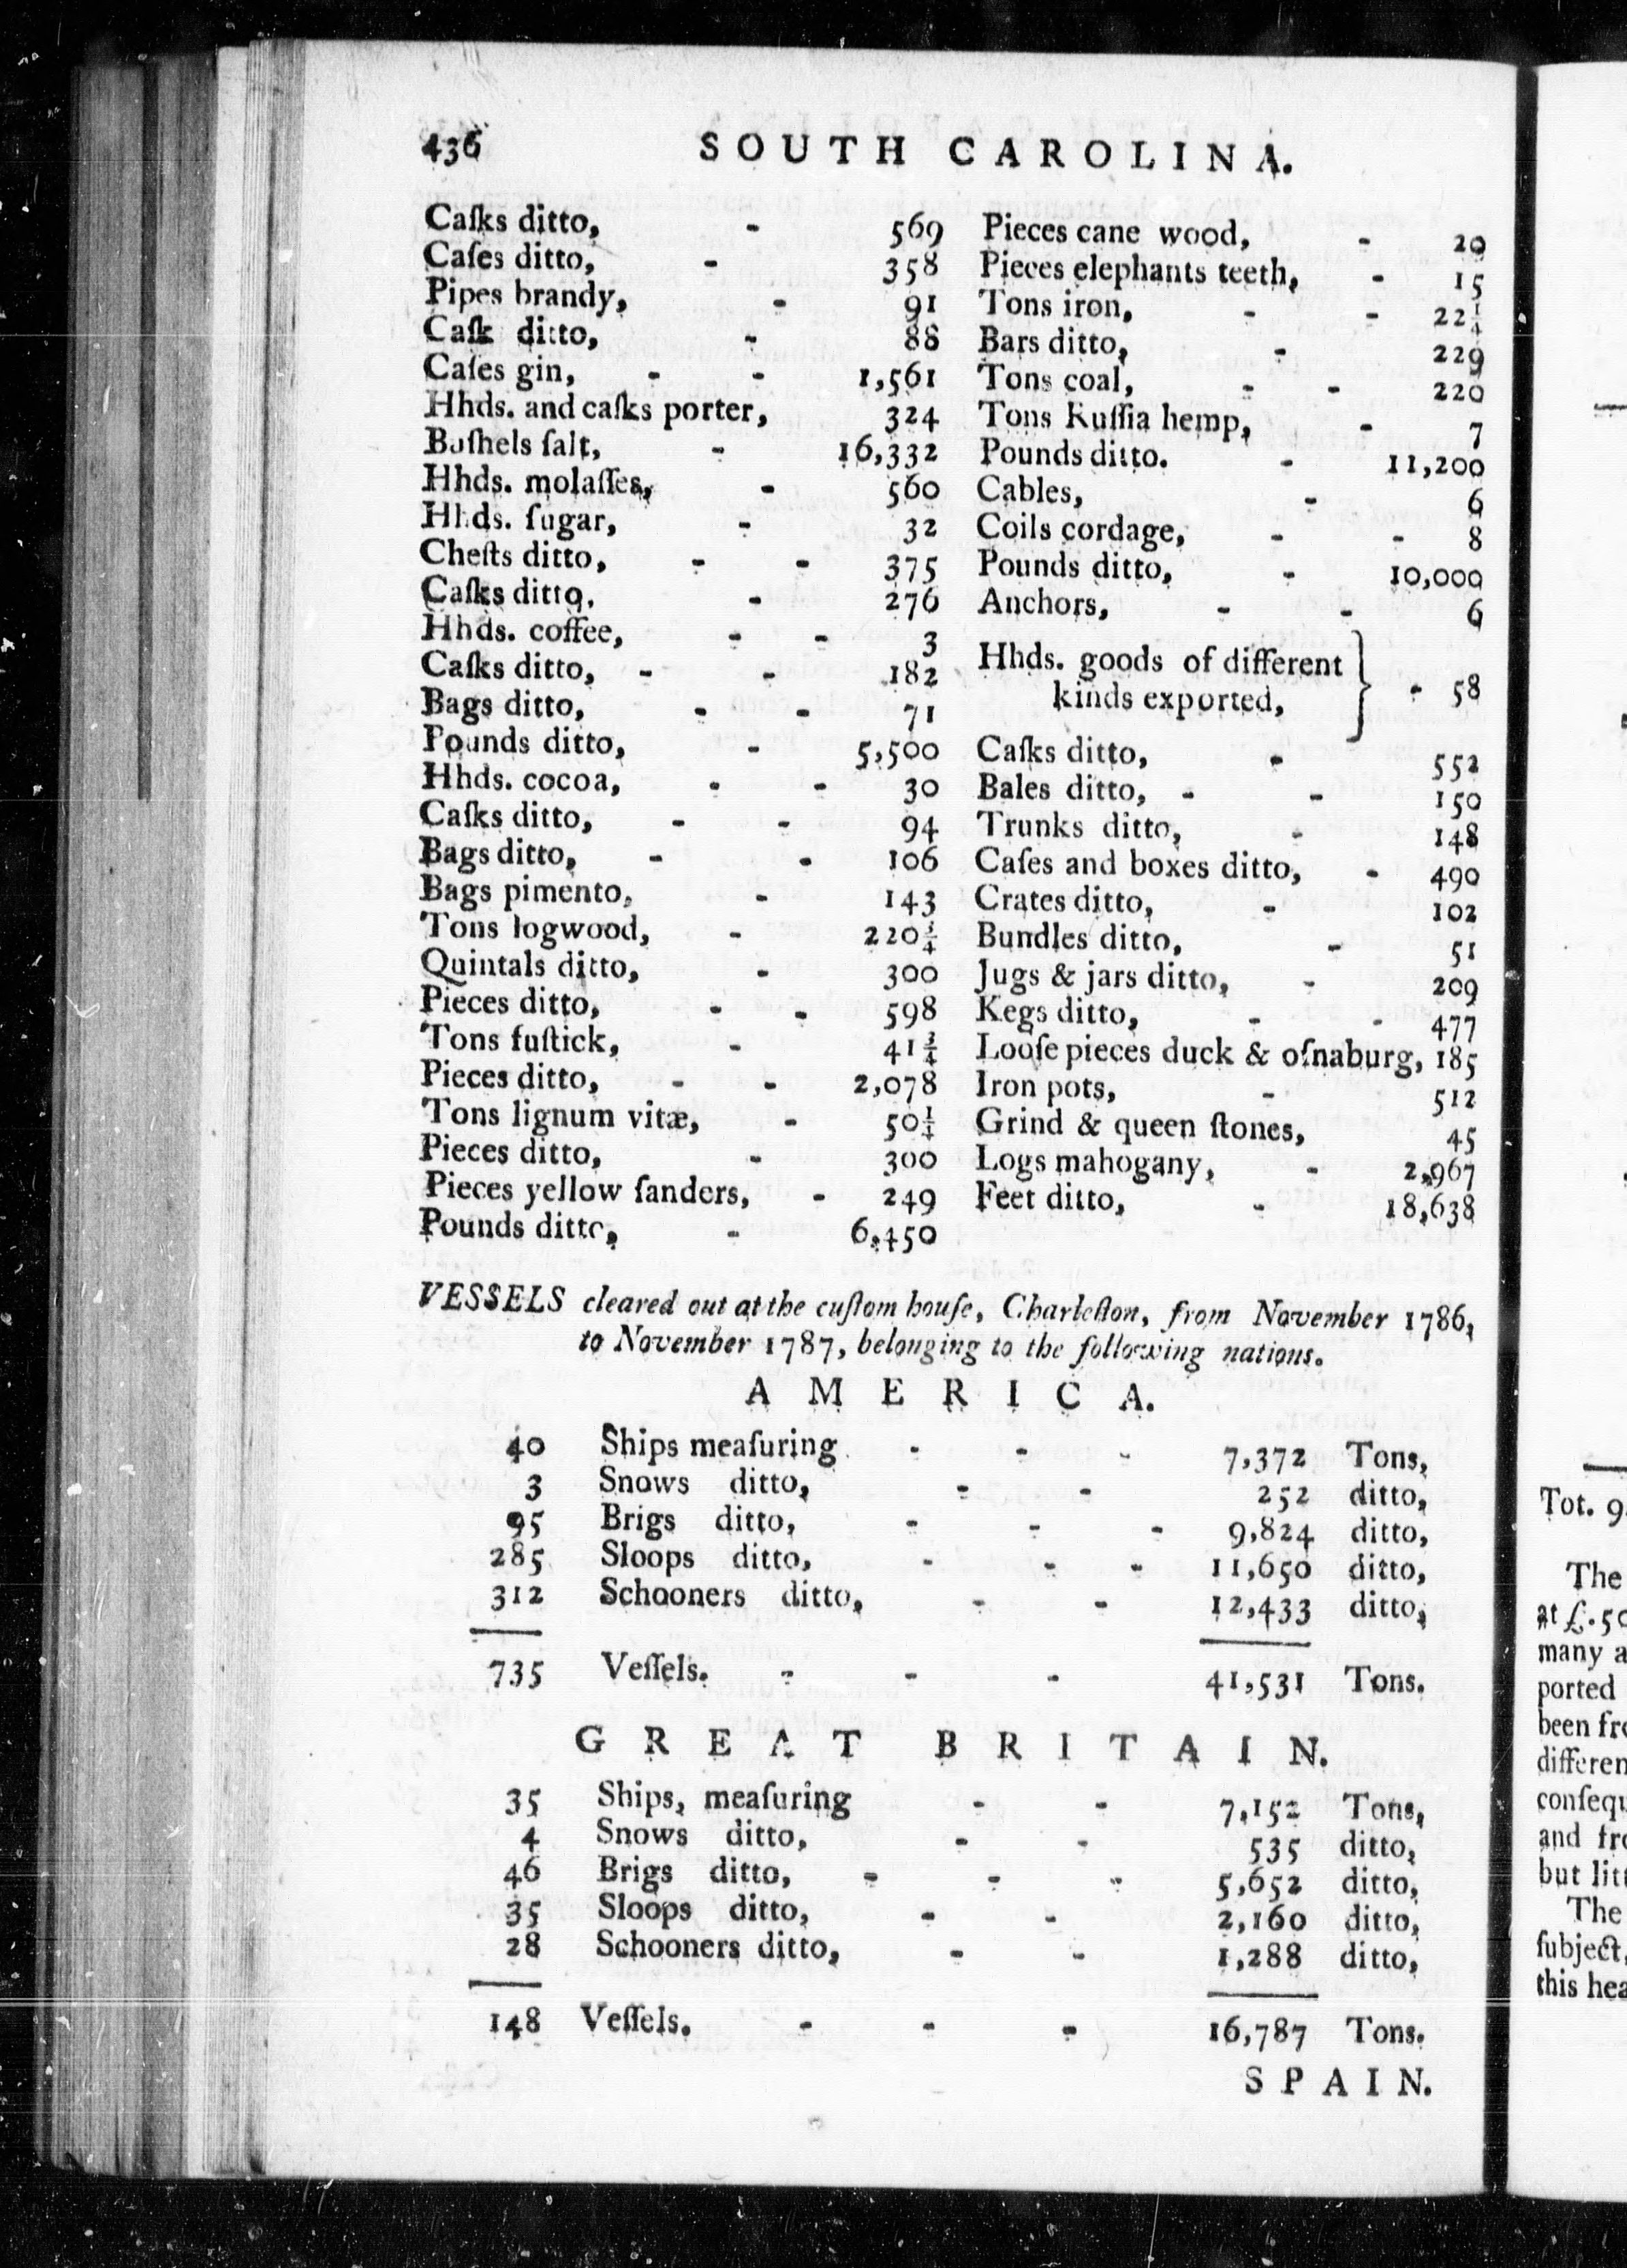 436 SOUTH CAROLINA.
Caſks ditto, - 569
Caſes ditto, - 358
Pipes brandy, - 91
Caſk ditto, - 88
Caſes gin, - - 1,561
Hhds. and caſks porter, 324
Buſhels ſalt, - 16,332
Hhds. molaſſes, - 560
Hhds. ſugar, - 32
Cheſts ditto, - - 375
Caſks ditto, - 276
Hhds. coffee, - - 3
Caſks ditto, - - 182
Bags ditto, - - 71
Pounds ditto, - 5,500
Hhds. cocoa, - - 30
Caſks ditto, - - 94
Bags ditto, - - 106
Bags pimento, - 143
Tons logwood, - 220¾
Quintals ditto, - 300
Pieces ditto, - - 598
Tons fuſtick, - 41¾
Pieces ditto, - - 2,078
Tons lignum vitæ, - 50¼
Pieces ditto, - 300
Pieces yellow ſanders, - 249
Pounds ditto, - 6,450
Pieces cane wood, - 20
Pieces elephants teeth, - 15
Tons iron, - - 22¼
Bars ditto, - 229
Tons coal, - - 220
Tons Ruſſia hemp, - 7
Pounds ditto. - 11,200
Cables, - 6
Coils cordage, - - 8
Pounds ditto, - 10,000
Anchors, - - 6
Hhds. goods of different
kinds exported, } - 58
Caſks ditto, - 552
Bales ditto, - - 150
Trunks ditto, - 148
Caſes and boxes ditto, - 490
Crates ditto, - 102
Bundles ditto, - 51
Jugs & jars ditto, - 209
Kegs ditto, - - 477
Looſe pieces duck & oſnaburg, 185
Iron pots, - 512
Grind & queen ſtones, 45
Logs mahogany, - 2,967
Feet ditto, - 18,638
VESSELS cleared out at the cuſtom houſe, Charleſton, from November 1786,
to November 1787, belonging to the following nations.
AMERICA.
40 Ships meaſuring - - - 7,372 Tons,
3 Snows ditto, - - 252 ditto,
95 Brigs ditto, - - - 9,824 ditto,
285 Sloops ditto, - - - 11,650 ditto,
312 Schooners ditto, - - 12,433 ditto,
735 Veſſels. - - - 41,531 Tons.
GREAT BRITAIN.
35 Ships, meaſuring - - 7,152 Tons,
4 Snows ditto, - - 535 ditto,
46 Brigs ditto, - - - 5,652 ditto,
35 Sloops ditto, - - 2,160 ditto,
28 Schooners ditto, - - 1,288 ditto,
148 Veſſels. - - - 16,787 Tons.
SPAIN.
Tot. 9
The
at £.50
many a
ported
been fr
differen
conſequ
and fr
but lit
The
ſubject,
this hea